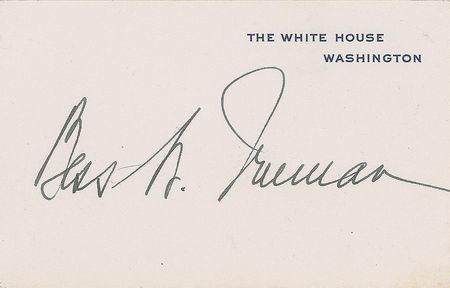 THE WHITE HOUSE
WASHINGTON
Bess W. Truman